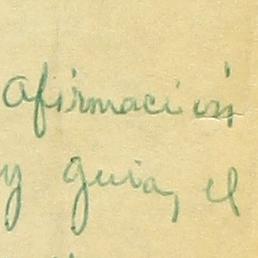 afirmación
y guia, el